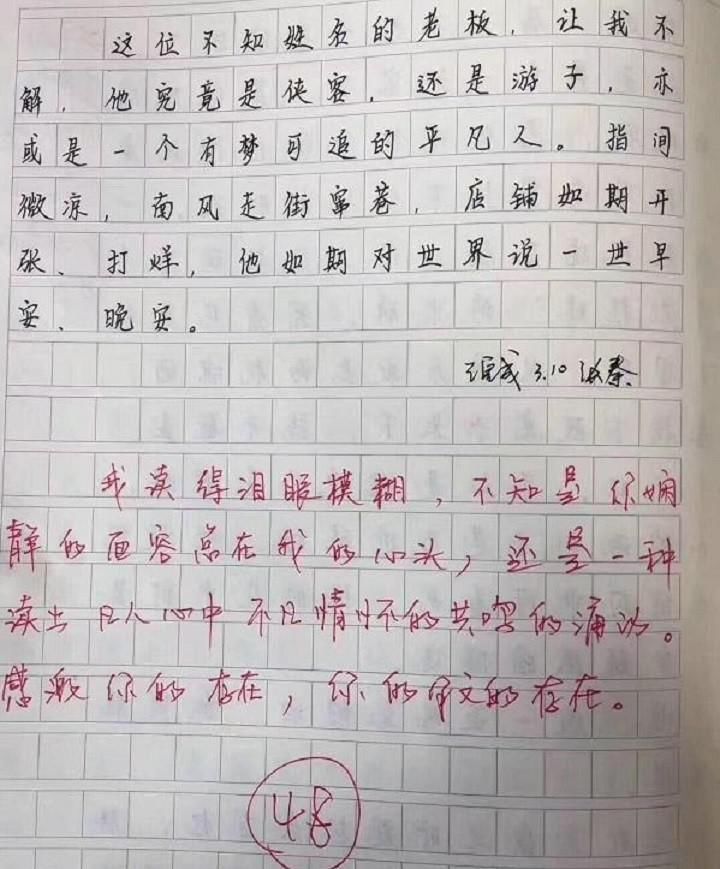 这位不知姓名的老板，让我不
解，他究竟是侠客，还是游子，亦
或是一个有梦可追的平凡人。指间
微凉，南风走街窜巷，店铺如期开
张、打烊，他如期对世界说一世早
安、晚安。
3.10
我读得泪眼模糊，不知是你娴
静的面容总在我的心头，还是一种
读出凡人心中不凡情怀的共鸣的痛快。
感激你的存在，你的文的存在。
48